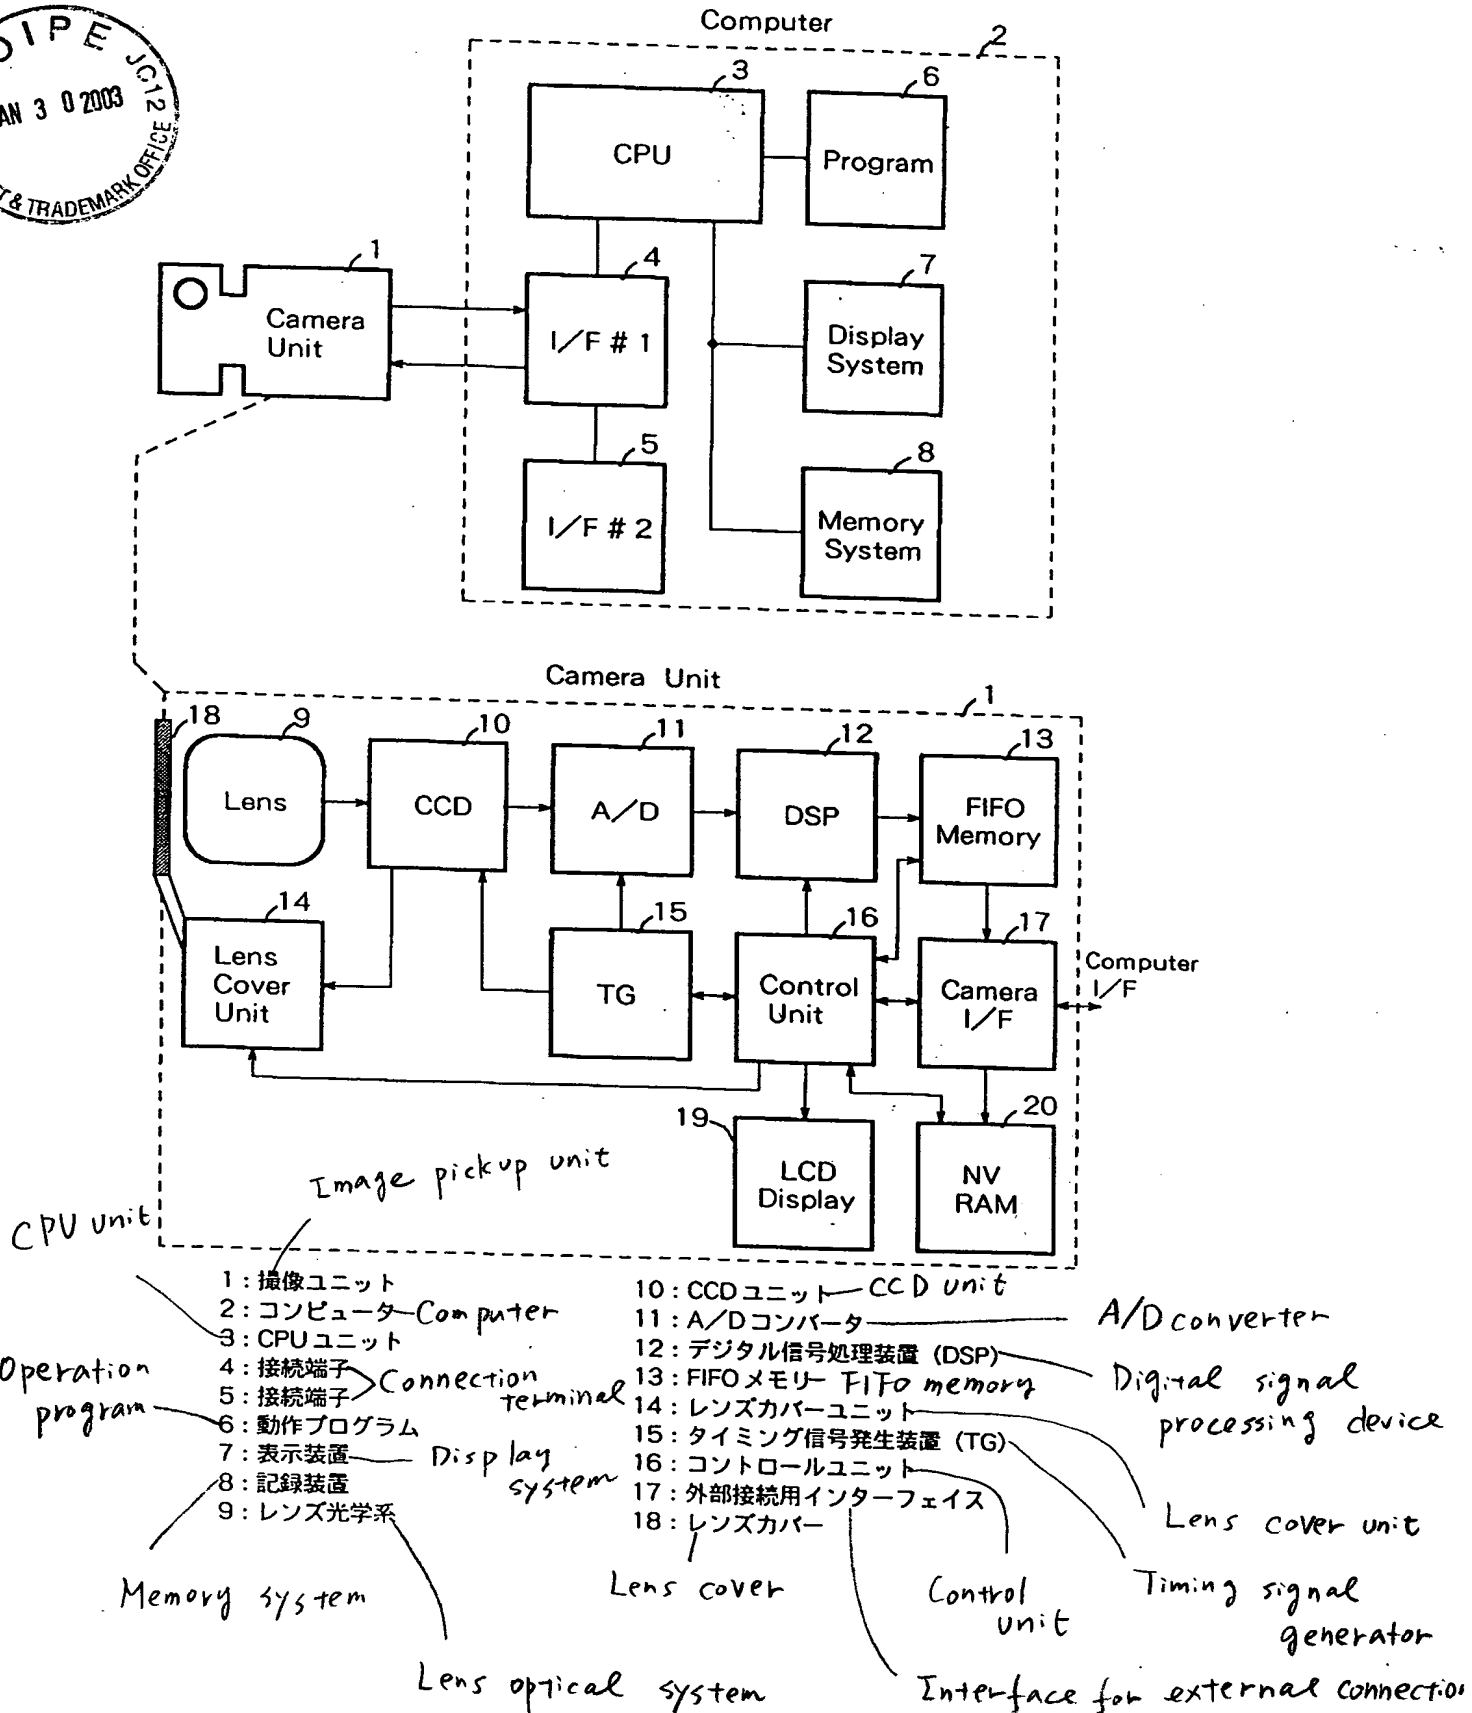 OIPE JC12
JAN 3 0 2003
& TRADEMARK OFFICE
Computer
2
3
CPU
6
Program
1
Camera
Unit
4
I/F # 1
7
Display
System
5
I/F # 2
8
Memory
System
Camera Unit
1
18
9
Lens
10
CCD
11
A/D
12
DSP
13
FIFO
Memory
14
Lens
Cover
Unit
15
TG
16
Control
Unit
17
Camera
I/F
Computer
I/F
19
LCD
Display
20
NV
RAM
Image pickup unit
CPU unit
1 : 撮像ユニット
2 : コンピューター Computer
3 : CPU ユニット
4 : 接続端子
5 : 接続端子
Connection
terminal
Operation
program
6 : 動作プログラム
7 : 表示装置
Display
system
8 : 記録装置
9 : レンズ光学系
10 : CCD ユニット CCD unit
11 : A/D コンバータ A/D converter
12 : デジタル信号処理装置 (DSP)
Digital signal
processing device
13 : FIFO メモリー FIFO memory
14 : レンズカバーユニット
15 : タイミング信号発生装置 (TG)
16 : コントロールユニット
17 : 外部接続用インターフェイス
18 : レンズカバー
Lens cover unit
Memory system
Lens cover
Control
unit
Timing signal
generator
Lens optical system
Interface for external connection